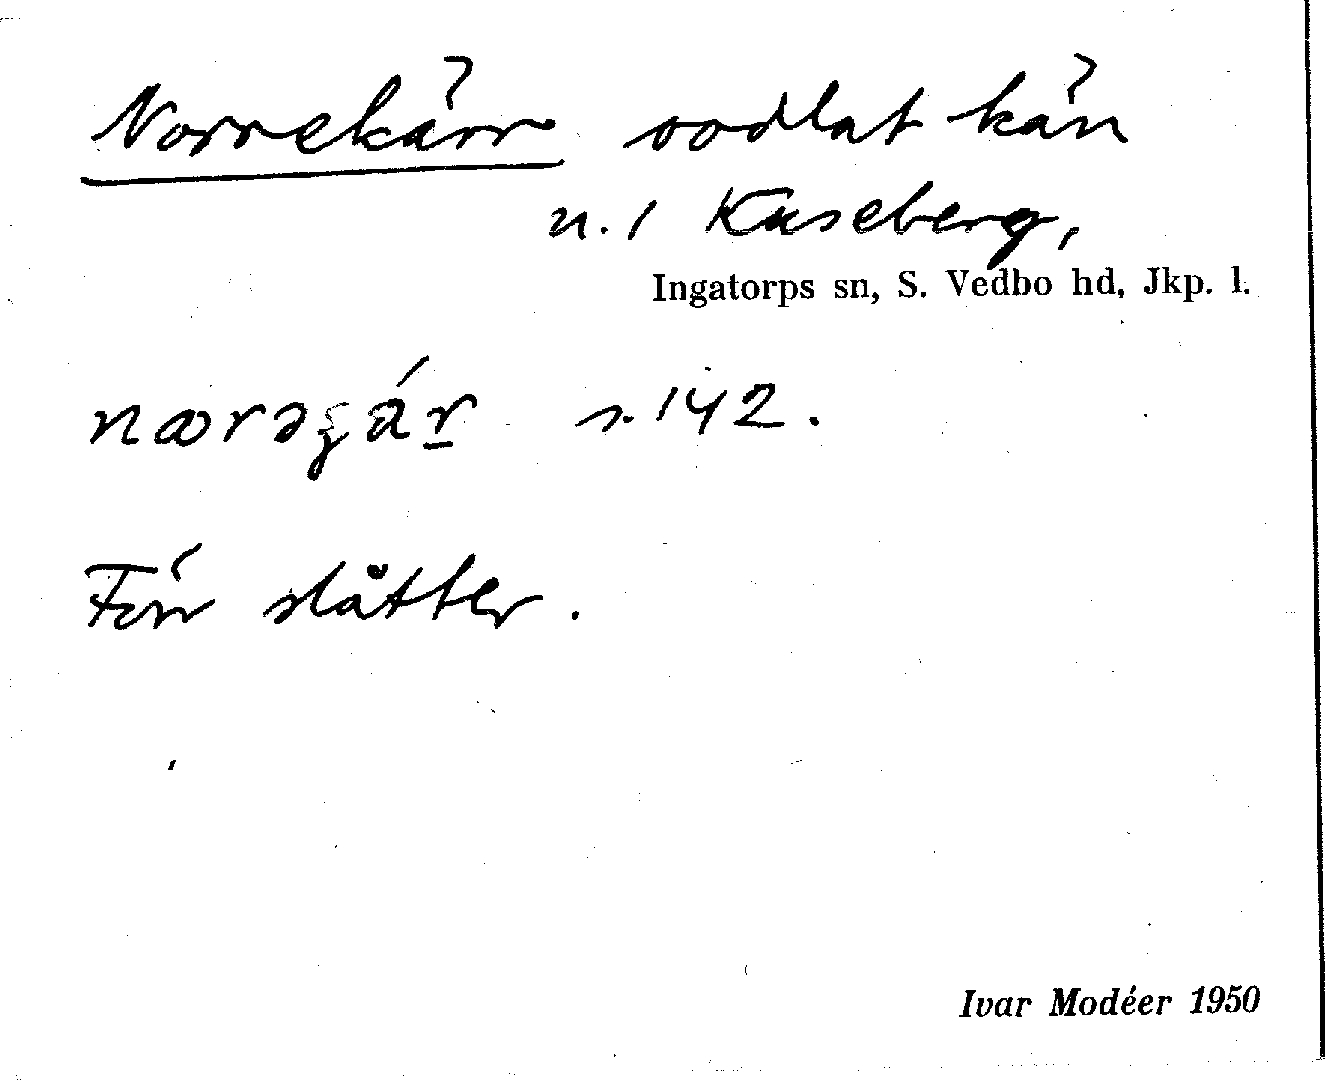 Norrekärr oodlat kärr
n. 1 Kuseberg,
Ingatorps sn, S. Vedbo hd, Jkp. l.
s. 142.
Förr slåtter.
Ivar Modéer 1950